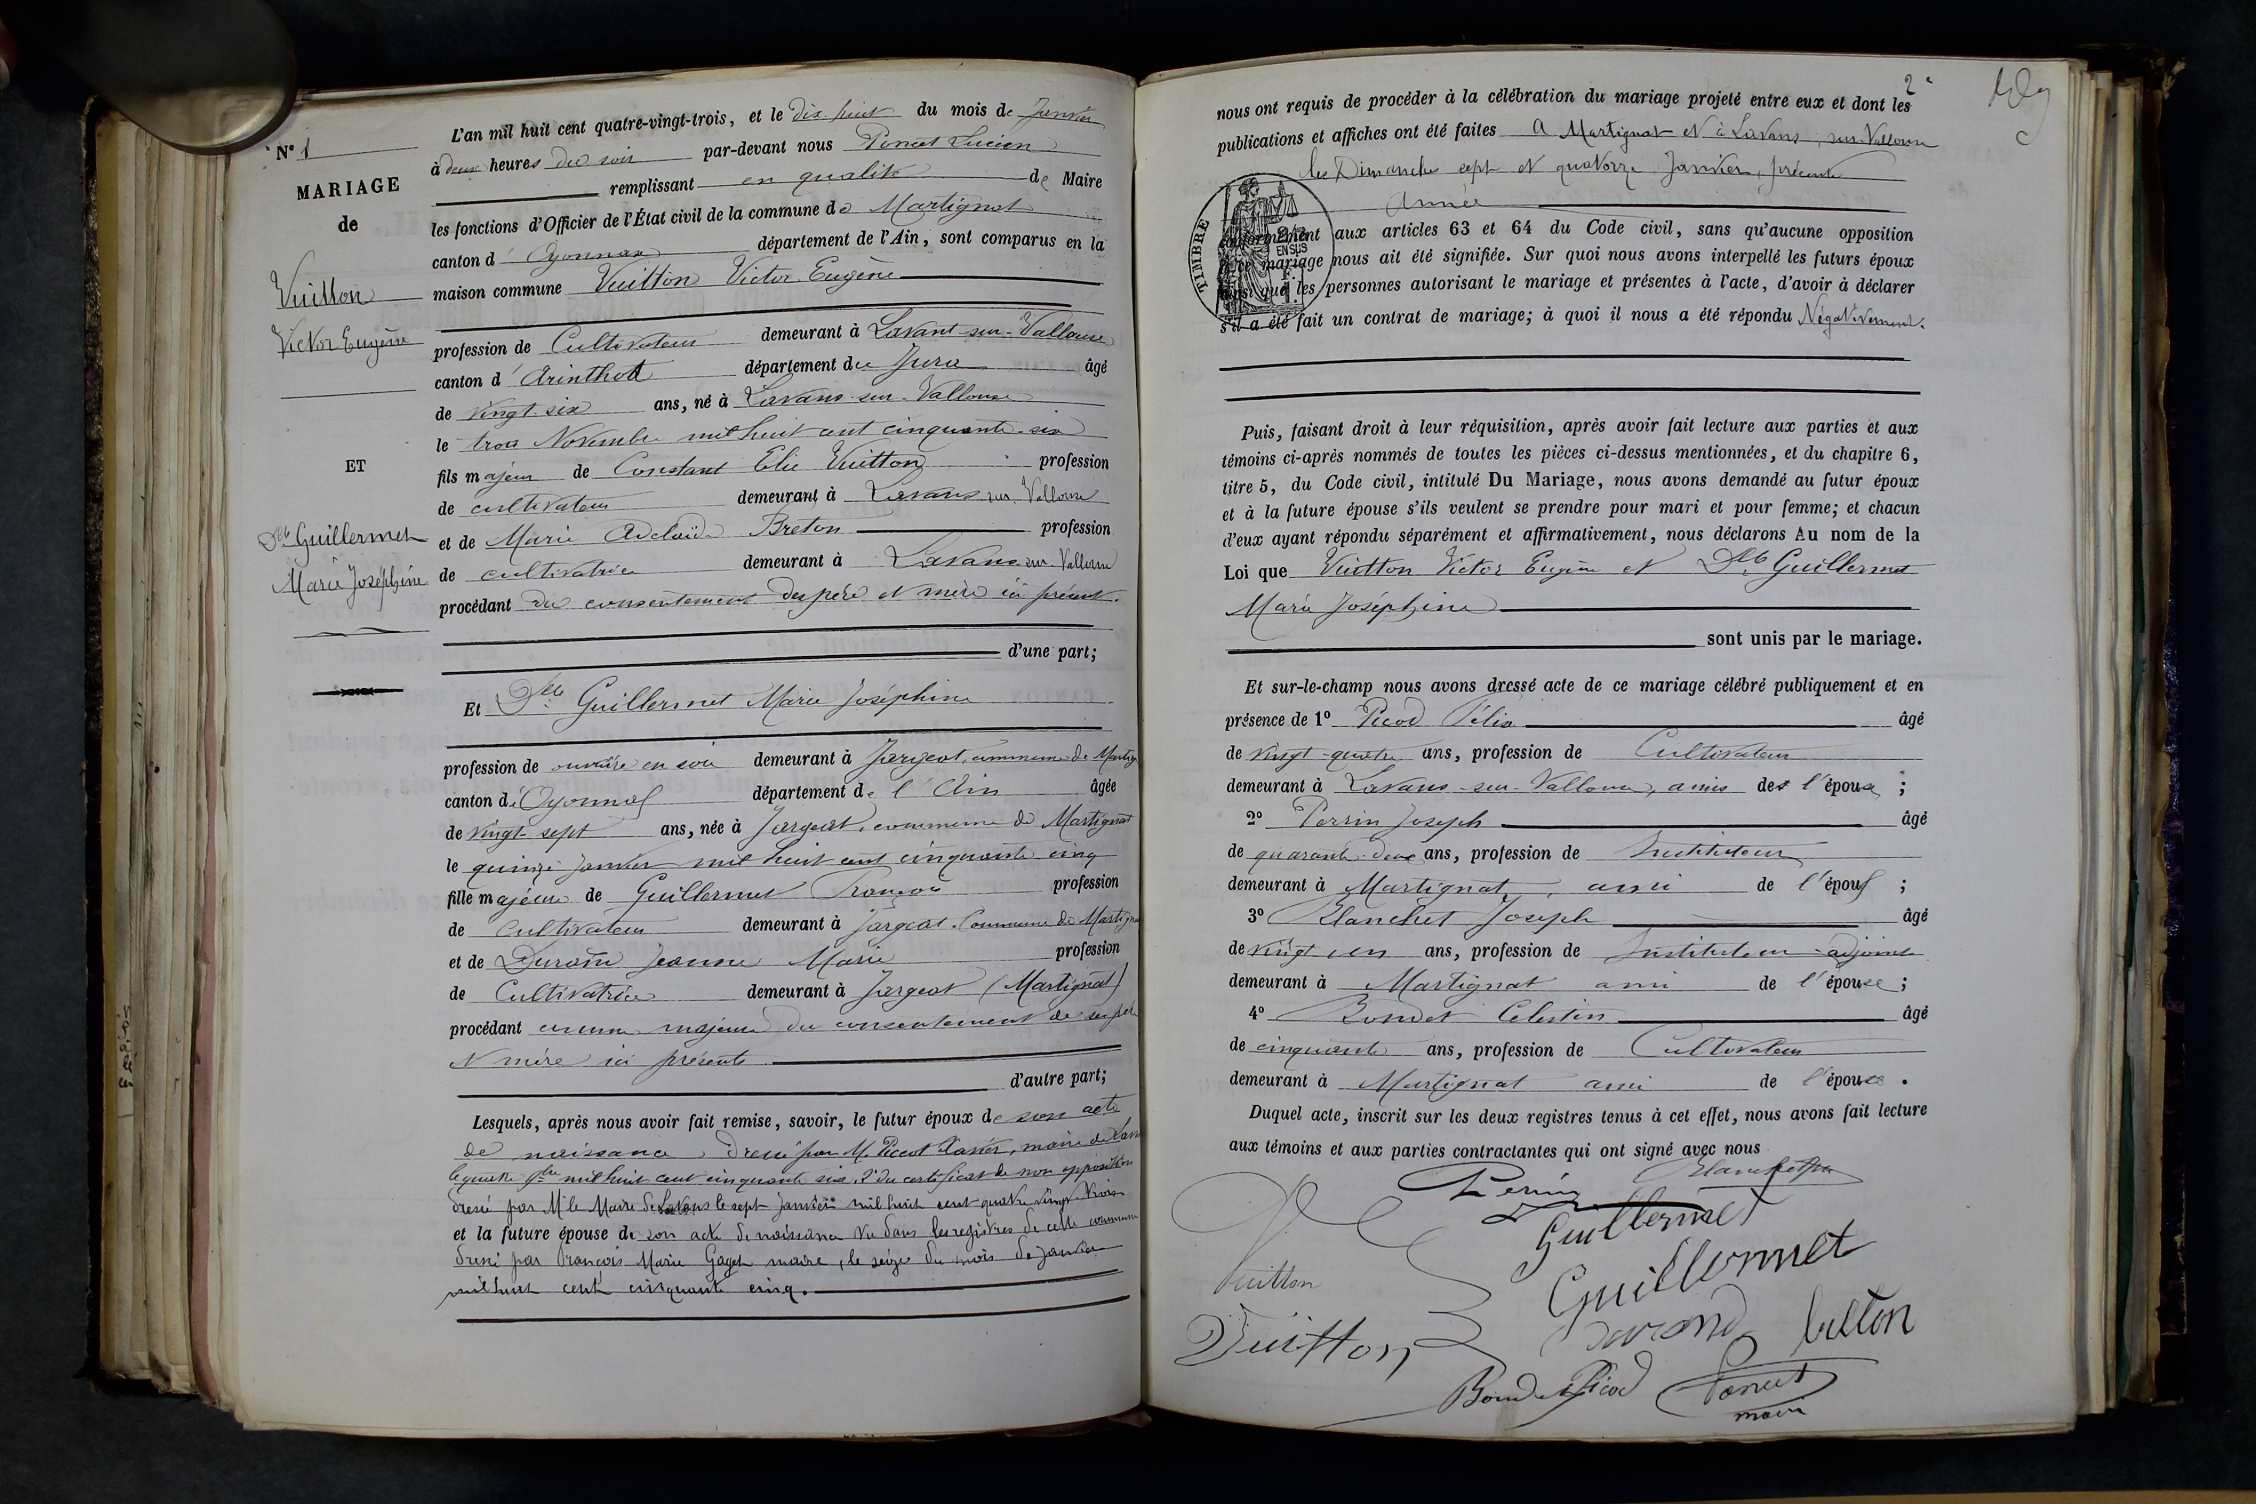 N° 1
MARIAGE
de
Vuitton
Victor Eugène
ET
Dlle Guillermet
Marie Joséphine
L'an mil huit cent quatre-vingt-trois, et le dix huit du mois de Janvier
à deux heures du soir par-devant nous Poncet Lucien
remplissant en qualité de Maire
les fonctions d'Officier de l'État civil de la commune de Martignat
canton d'Oyonnax département de l'Ain, sont comparus en la
maison commune Vuitton Victor Eugène
profession de Cultivateur demeurant à Lavans-sur-Valouse
canton d'Arinthod département du Jura âgé
de vingt-six ans, né à Lavans-sur-Vallouse
le trois Novembre mil huit cent cinquante-six
fils majeur de Constant Elie Vuitton profession
de cultivateur demeurant à Lavans sur Vallouse
et de Marie Adelaïde Breton profession
de cultivatrice demeurant à Lavans sur Vallouse
procédant du consentement des père et mère ici présents.
d'une part;
Et Dlle Guillermet Marie Joséphine
profession de ouvrière en soie demeurant à Jargeat, commune de Martig
canton d'Oyonnax département de l'Ain âgée
de vingt-sept ans, née à Jargeat, commune de Martignat
le quinze Janvier mil huit cent cinquante cinq
fille majeure de Guillermet François profession
de Cultivateur demeurant à Jargeat. Commune de Martigna
et de Durand Jeanne Marie profession
de Cultivatrice demeurant à Jargeat (Martignat)
procédant comme majeure du consentement de ses père
et mère ici présents
d'autre part;
Lesquels, après nous avoir fait remise, savoir, le futur époux de son acte
de naissance, dressé par M. Piccot Xavier, maire de Lavans
le quatre 9bre mil huit cent cinquante six, 2° du certificat de non opposition
dressé par M le Maire de Lavans le sept Janvier mil huit cent quatre vingt trois
et la future épouse de son acte de naissance vu dans les registres de cette commune
dressé par François Marie Gaget maire, le seize du mois de janvier
mil huit cent cinquante cinq.
2
nous ont requis de procéder à la célébration du mariage projeté entre eux et dont les
publications et affiches ont été faites A Martignat et à Lavans, sur-Vallouse
les Dimanches sept et quatorze Janvier, présente
Année
TIMBRE
EN SUS
conformément aux articles 63 et 64 du Code civil, sans qu'aucune opposition
à ce mariage nous ait été signifiée. Sur quoi nous avons interpellé les futurs époux
ainsi que les personnes autorisant le mariage et présentes à l'acte, d'avoir à déclarer
s'il a été fait un contrat de mariage; à quoi il nous a été répondu Négativement.
Puis, faisant droit à leur réquisition, après avoir fait lecture aux parties et aux
témoins ci-après nommés de toutes les pièces ci-dessus mentionnées, et du chapitre 6,
titre 5, du Code civil, intitulé Du Mariage, nous avons demandé au futur époux
et à la future épouse s'ils veulent se prendre pour mari et pour femme; et chacun
d'eux ayant répondu séparément et affirmativement, nous déclarons Au nom de la
Loi que Vuitton Victor Eugène et Dlle Guillermet
Marie Joséphine
sont unis par le mariage.
Et sur-le-champ nous avons dressé acte de ce mariage célébré publiquement et en
présence de 1° Picod Félix âgé
de vingt-quatre ans, profession de Cultivateur
demeurant à Lavans-sur-Vallouse, amis de l'épouse;
2° Perrin Joseph âgé
de quarante-deux ans, profession de Instituteur
demeurant à Martignat, ami de l'époux;
3° Blanchet Joseph âgé
de vingt un ans, profession de Instituteur-adjoint
demeurant à Martignat ami de l'épouse;
4° Bondet Célestin âgé
de cinquante ans, profession de Cultivateur
demeurant à Martignat ami de l'épouse.
Duquel acte, inscrit sur les deux registres tenus à cet effet, nous avons fait lecture
aux témoins et aux parties contractantes qui ont signé avec nous
Perrin
Blanchet
Guillermet
Guillermet
Vuitton
Vuitton
Durand
Bondet
Picod
Poncet
maire